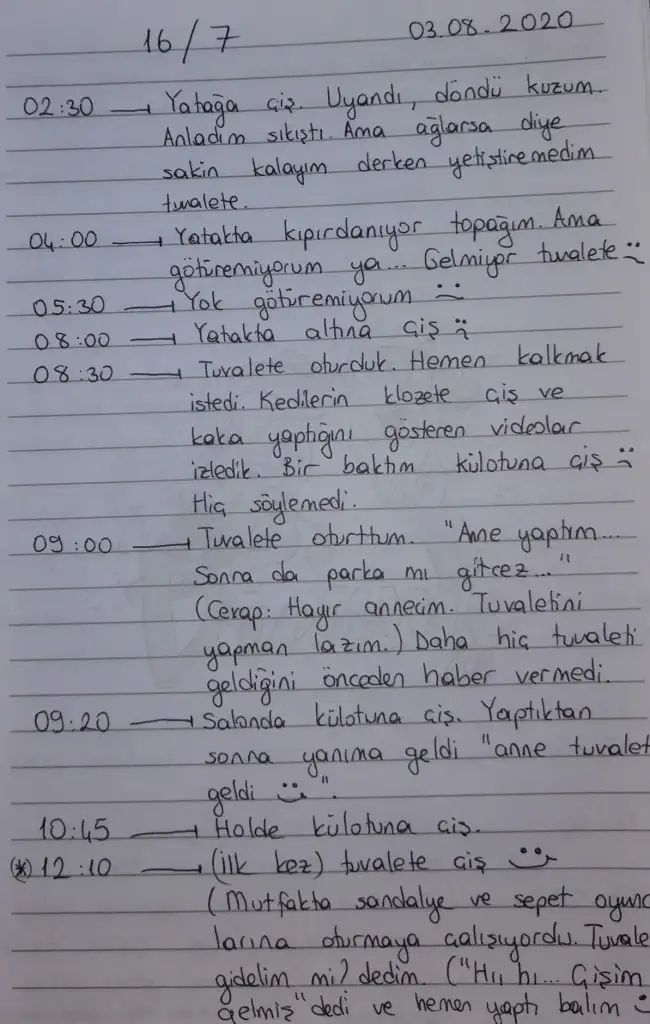 16/7 03.08.2020
02:30 → Yatağa çiş. Uyandı, döndü kuzum.
Anladım sıkıştı. Ama ağlarsa diye
sakin kalayım derken yetiştiremedim
tuvalete.
04:00 → Yatakta kıpırdanıyor topağım. Ama
götüremiyorum ya... Gelmiyor tuvalete :(
05:30 → Yok götüremiyorum :(
08:00 → Yatakta altına çiş :(
08:30 → Tuvalete oturduk. Hemen kalkmak
istedi. Kedilerin klozete çiş ve
kaka yaptığını gösteren videolar
izledik. Bir baktım külotuna çiş :(
Hiç söylemedi.
09:00 → Tuvalete oturttum. "Anne yaptım...
Sonra da parka mı gitcez..."
(Cevap: Hayır annecim. Tuvaletini
yapman lazım.) Daha hiç tuvaleti
geldiğini önceden haber vermedi.
09:20 → Salonda külotuna çiş. Yaptıktan
sonra yanıma geldi "anne tuvalet
geldi :)".
10:45 → Holde külotuna çiş.
(*) 12:10 → (ilk kez) tuvalete çiş :)
(Mutfakta sandalye ve sepet oyunc
larına oturmaya çalışıyordu. Tuvale
gidelim mi? dedim. ("Hı, hı... Çişim
gelmiş" dedi ve hemen yaptı balım :)